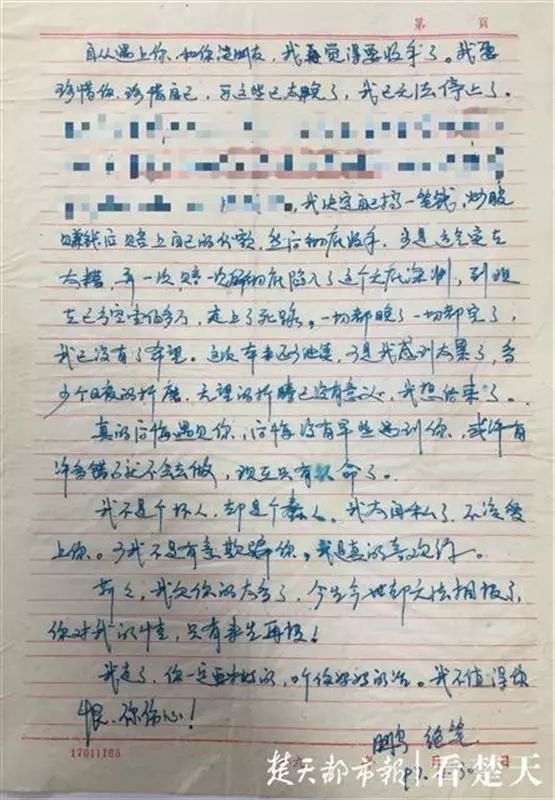 第 頁
自从遇上你、和你说朋友,我就觉得要收手了。我要
珍惜你,珍惜自己,可这些已太晚了,我已无法停上了。
,我决定自己搞一笔钱,炒股
赚钱后赔上自己的份额,然后彻底收手。可是这个实在
太糟,再一次赔一次 彻底陷入了这个无底深渊,到现
在已亏空壹佰多万,走上了死路。一切都晚了,一切都完了,
我已没有了希望。这次 于是我感到太累了,多
少个日夜的折磨,无望的折腾已没有意义,我想结束了。
真的后悔遇见你,后悔没有早些遇到你,或许有
许多错了就不会去做,现在只有 命了。
我不是个坏人,却是个蠢人。我太自私了,不该爱
上你。可我不是有意欺骗你。我是真的喜欢你。
莉之,我欠你的太多了,今生今世却无法相报了,
你对我的情,只有来生再报!
我走了,你一定要好好的, 你好好的活。我不值得你
恨、你伤心!
鹏 绝笔
17011165
97. 30日
楚天都市报 看楚天